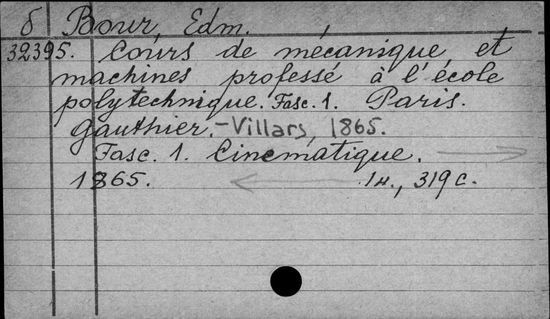 δ Bour, Edm.
32395. Cours de mécanique et
machines professé à l'école
polytechnique. Fasc. 1. Paris.
Gauthier.-Villars, 1865.
Fasc. 1. Cinématique.
1865. 14., 319 c.